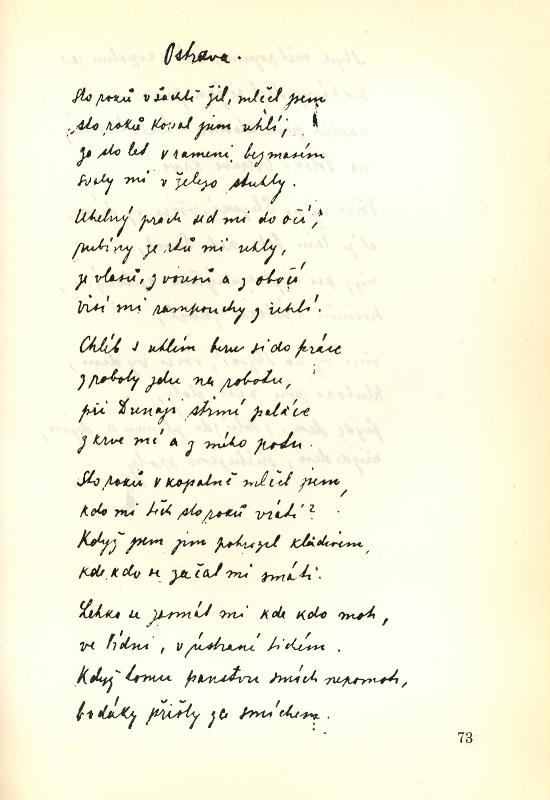 Ostrava.
Sto roků v šachtě žil, mlčel jsem
sto roků kopal jsem uhlí;
za sto let v rameni bezmasém
svaly mi v železo ztuhly.
Uhelný prach sed mi do očí,
rubíny ze rtů mi uhly,
ze vlasů, z vousů a z obočí
visí mi rampouchy z uhlí.
Chléb s uhlím beru si do práce
z roboty jdu na robotu,
při Dunaji strmí paláce
z krve mé a z mého potu.
Sto roků v kopalně mlčel jsem,
kdo mi těch sto roků vrátí?
Když jsem jim pohrozil kladivem,
kde kdo se začal mi smáti.
Lehko se zasmát mi kde kdo moh,
ve Vídni, v ústraní tichém.
Když tomu panstvu smích nepomoh,
bodáky přišly za smíchem.
73